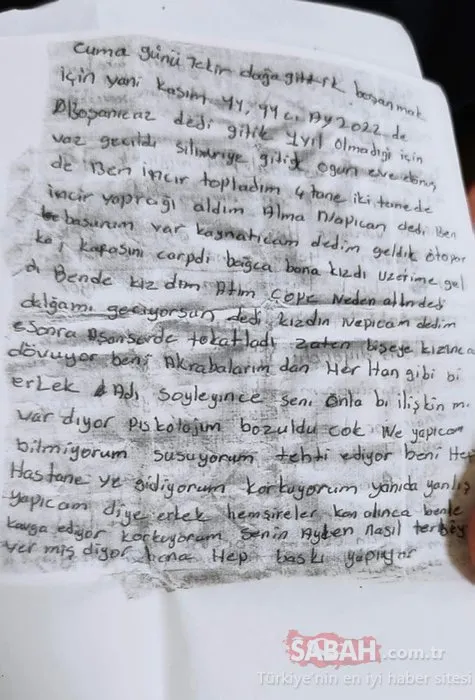 Cuma günü Tekir dağa gittik boşanmak
için yani Kasım 11, 11 ci Ay 2022 de
Boşanıcaz dedi gitik 1 yıl olmadığı için
vaz geçildi silivriye gitik Ogün eve dönüş
de Ben incir topladım 4 tane iki tane de
incir yaprağı aldım Alma Napıcan dedi Ben
basurum var kaynatıcam dedim geldik otopar
ka kafasını carpdı bağca bana kızdı üzerime gel
di Bende kızdım Atım ÇÖPE Neden aldın dedi
dalğamı geciyorsun dedi kızdın Nepicam dedim
Sonra Asansörde tokatladı zaten bişeye kızınca
dövüyor beni Akrabalarım dan Her Han gibi bi
erkek Adı söyleyince seni onla bi ilişkin mi
var diyor piskolojım bozuldu cok Ne yapıcam
bilmiyorum susuyorum tehti ediyor beni Hep
Hastane ye gidiyorum korkuyorum yanıda yanlış
yapıcam diye erkek hemşireler kan alınca benle
kavga ediyor korkuyorum senin Ayben Nasıl terbiy
ver miş diyor bana Hep baskı yapıyor
SABAH.com.tr
Türkiye'nin en iyi haber sitesi